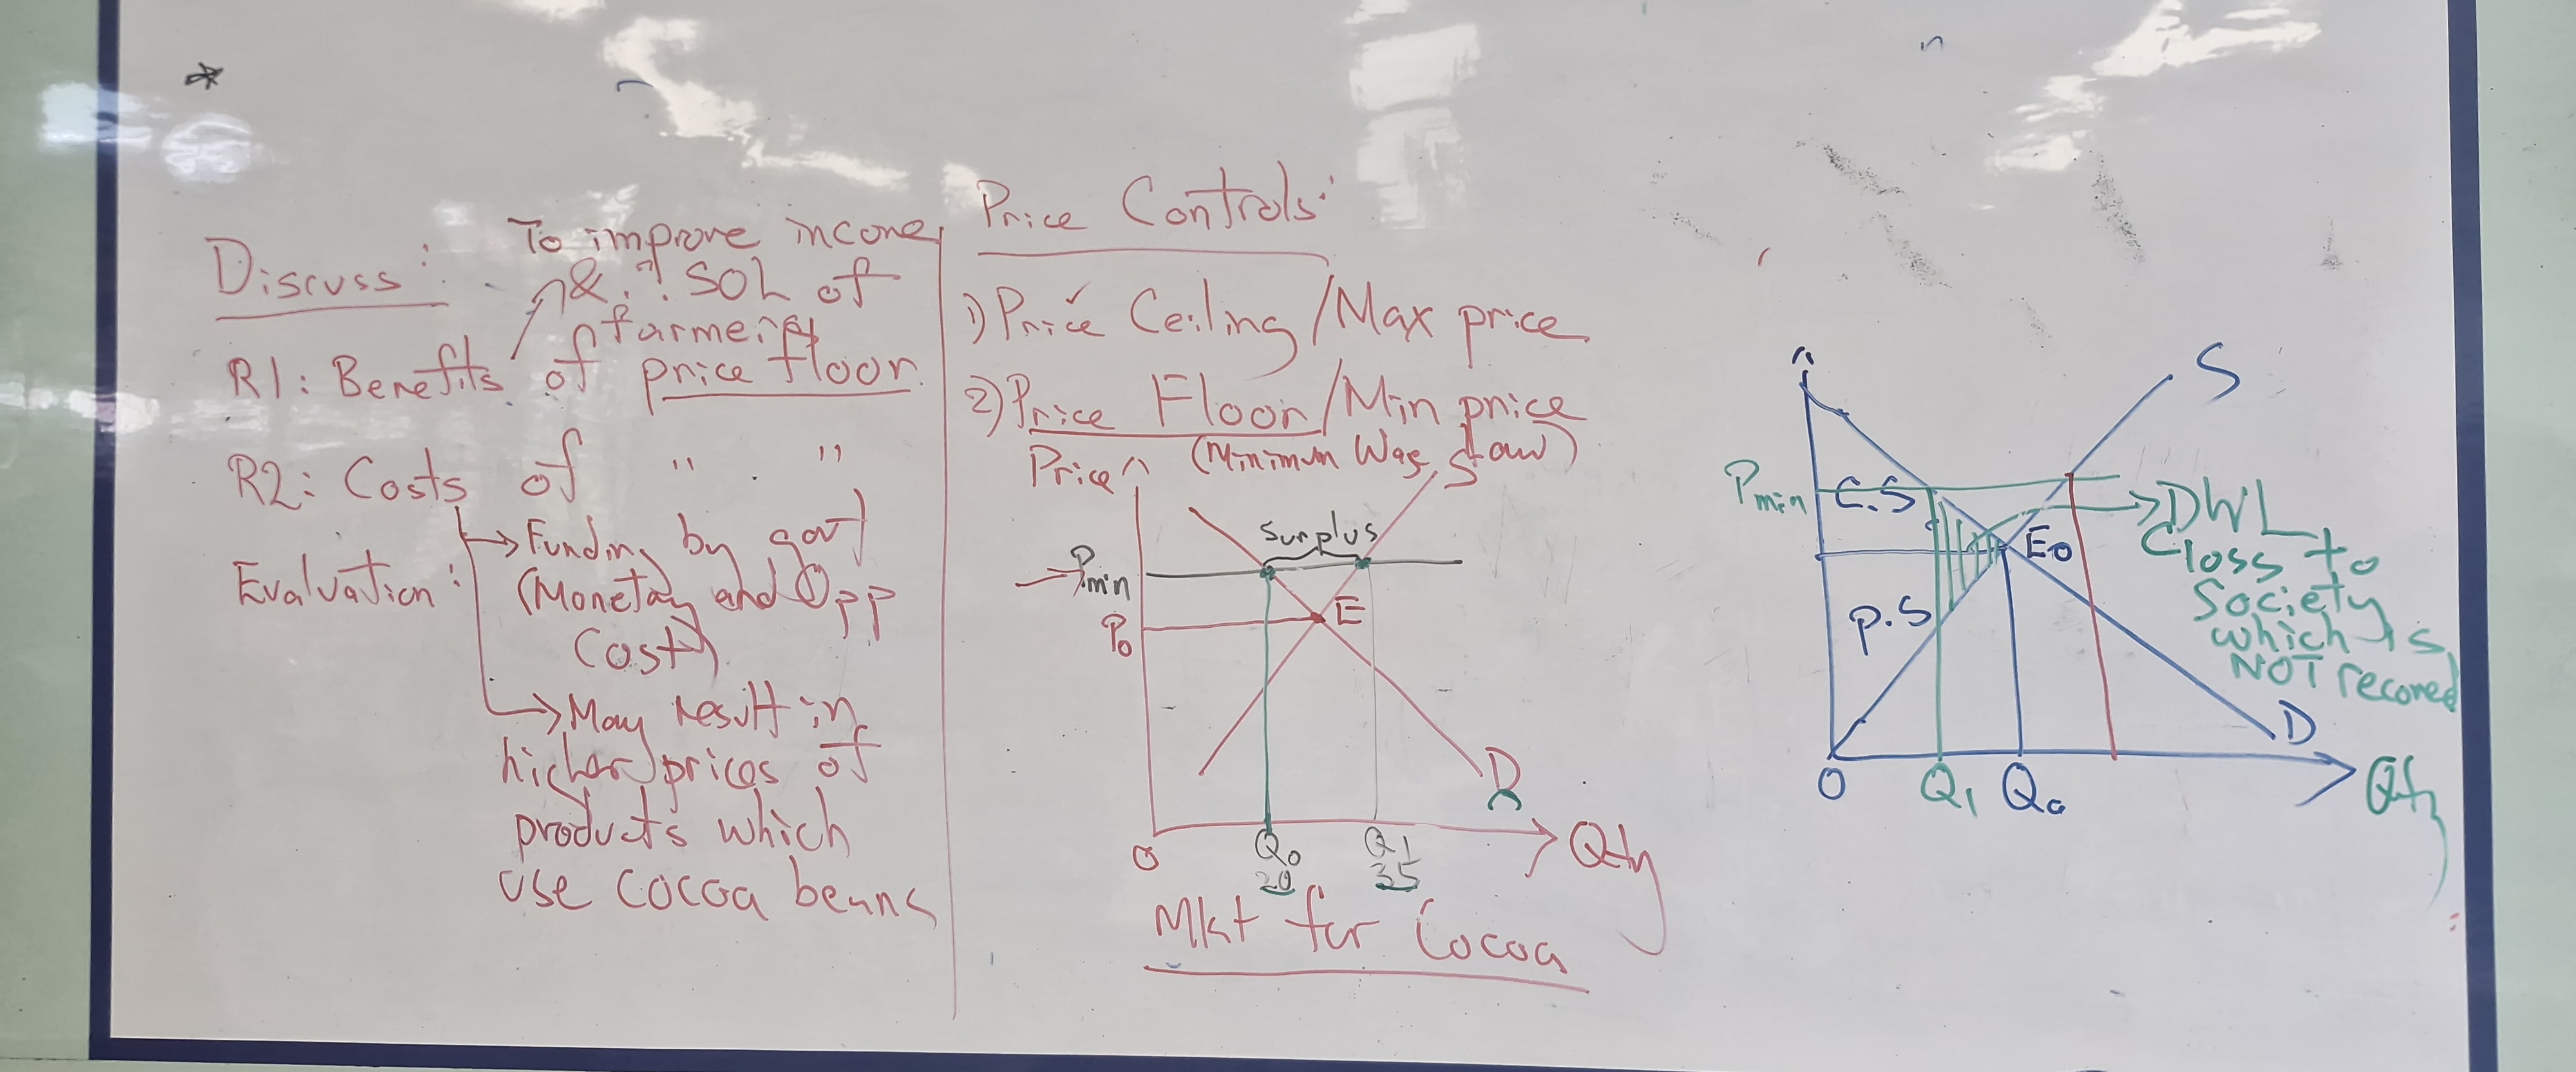 Discuss:
To improve income
& ? SOL of
farmers
R1: Benefits of price floor.
R2: Costs of " "
→ Funding by govt
(Monetary and Opp
Cost)
Evaluation:
→ May result in
higher prices of
products which
use cocoa beans
Price Controls:
1) Price Ceiling/Max price
2) Price Floor/Min price
(Minimum Wage Law)
Price
S
Surplus
Pmin
E
P0
D
O
Q0
Q1
Qty
20
35
Mkt for Cocoa
S
Pmin
C.S
→ DWL
E0
(loss to
Society
which is
NOT recovered
P.S
D
O
Q1
Q0
Qty